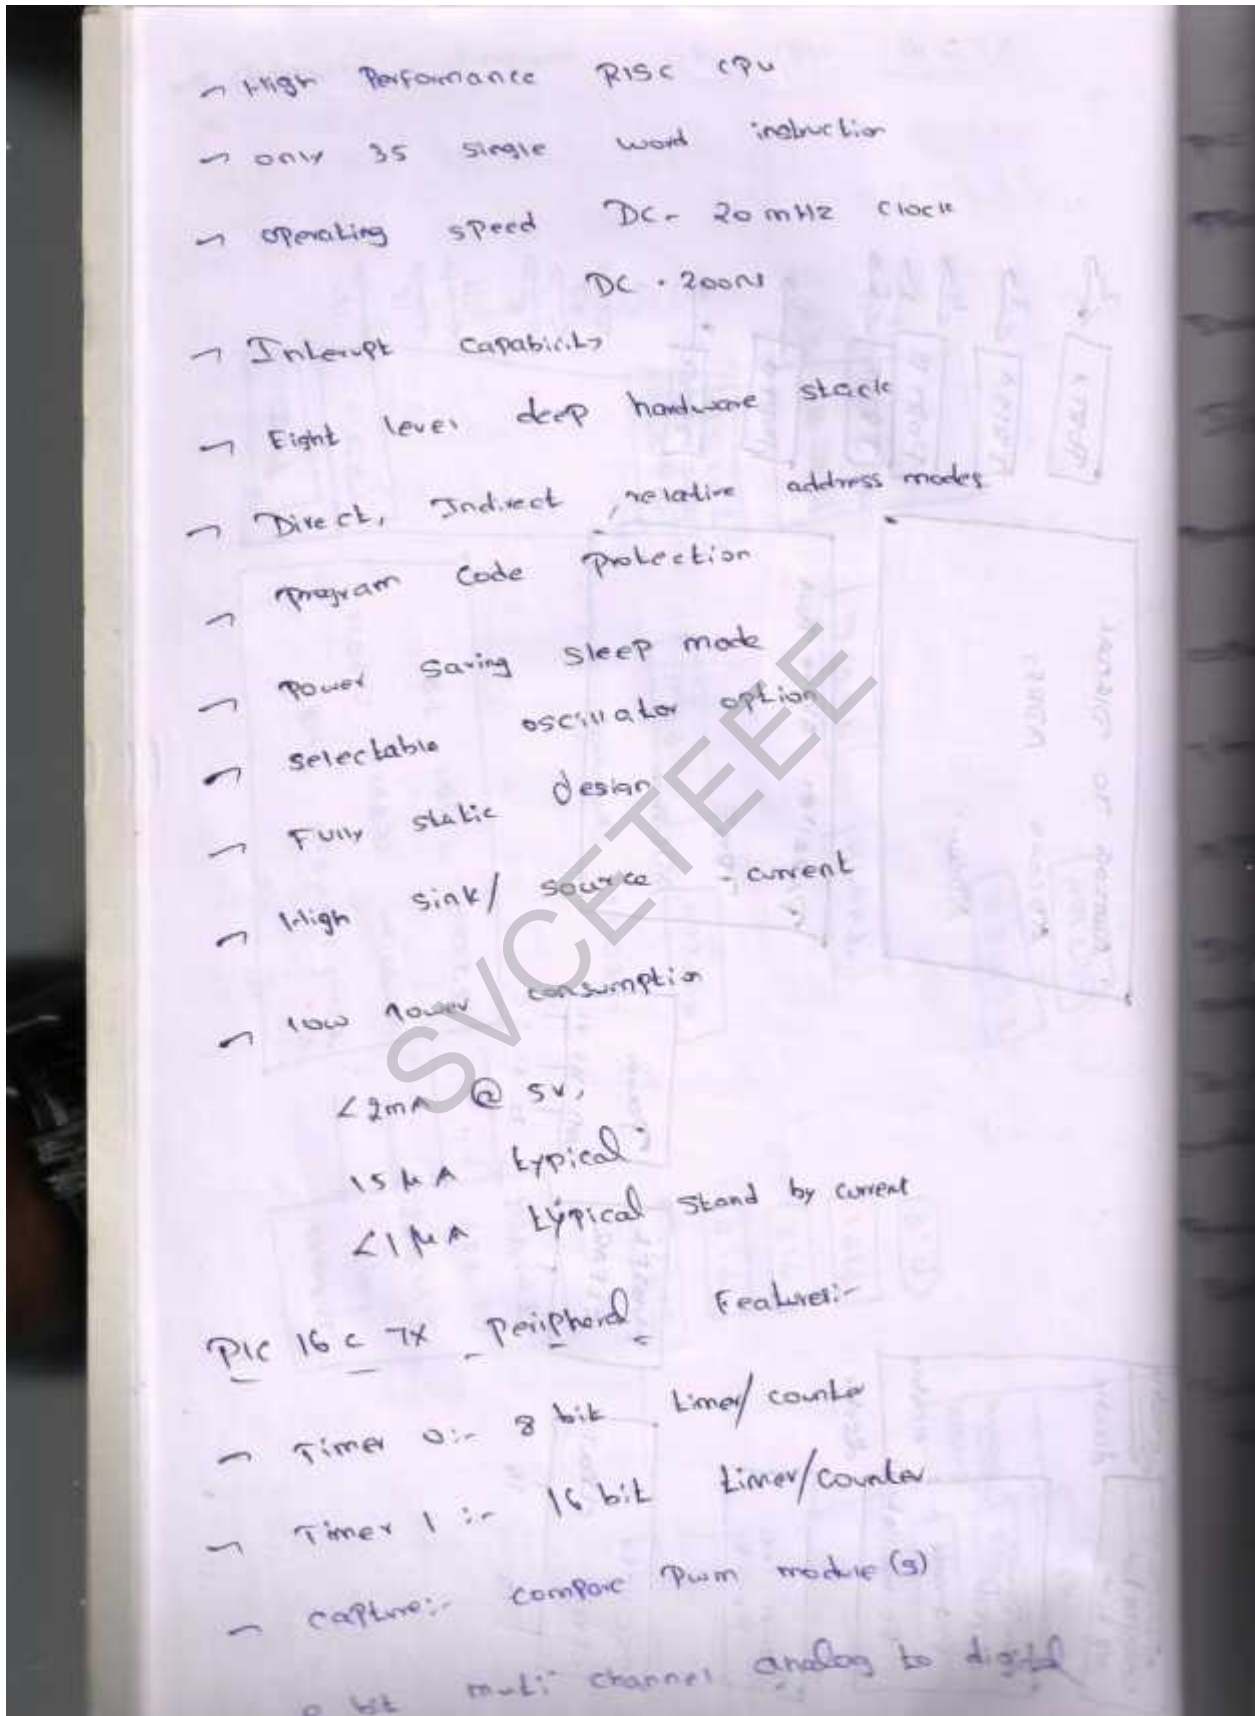 → High Performance RISC CPU
→ only 35 single word instruction
→ operating speed DC - 20 mHz clock
DC - 200ns
→ Interupt Capability
→ Eight level deep hardware stack
→ Direct, Indirect, relative address modes
→ Program Code Protection
→ Power Saving Sleep mode
→ selectable oscillator option
→ Fully static design
→ High sink/ source - current
→ low Power consumption
<2mA @ 5V,
15 μA typical
<1 μA typical stand by current
PIC 16 C 7X Peripheral Features:-
→ Timer 0:- 8 bit timer/counter
→ Timer 1 :- 16 bit timer/counter
→ Capture:- compare Pwm module(s)
bit multi channel analog to digital
SVCETEEE